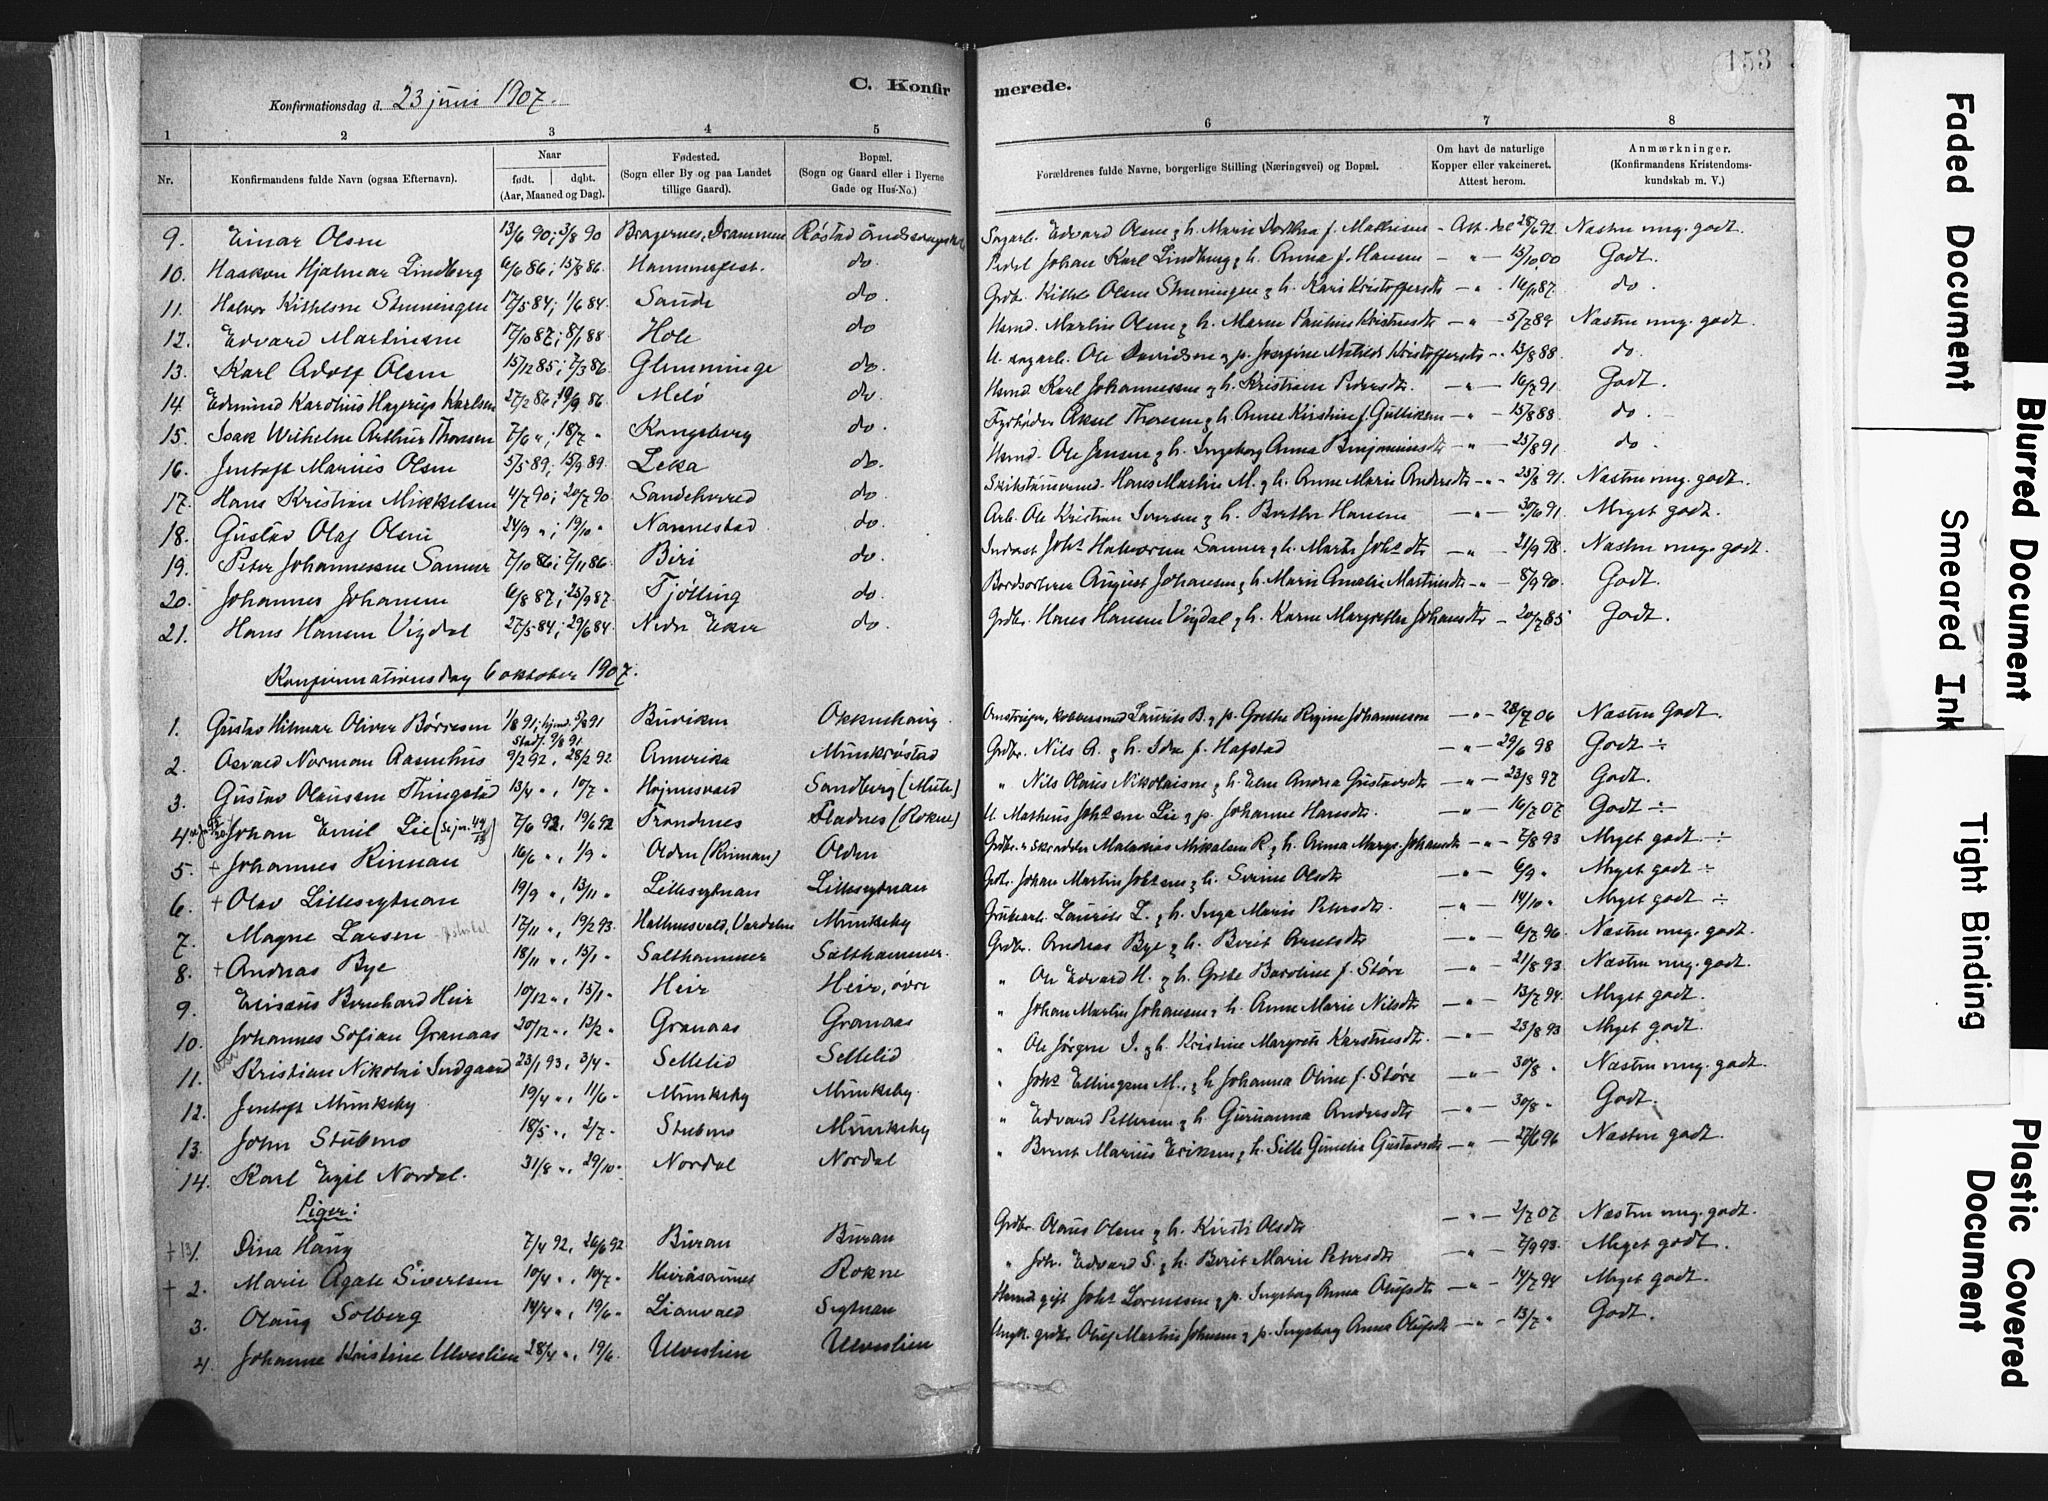 153
C. Konfirmerede.
Konfirmationsdag d. 23 juni 1907.
1 2 3 4 5 6 7 8
Nr. Konfirmandens fulde Navn (ogsaa Efternavn). Naar født. døbt. (Aar, Maaned og Dag). Fødested. (Sogn eller By og paa Landet tillige Gaard). Bopæl. (Sogn og Gaard eller i Byerne Gade og Hus-No.) Forældrenes fulde Navne, borgerlige Stilling (Næringsvei) og Bopæl. Om havt de naturlige Kopper eller vakcineret. Attest herom. Anmærkninger. (Konfirmandens Kristendomskundskab m. V.)
9. Einar Olsen 13/6 90; 3/8 90 Bragernes, Drammen Røstad Edvard Olsen & h. Marie f. Mathisen Att. dat 28/6 92 Næsten meg. godt.
10. Haakon Hjalmar Lindberg 6/6 86; 15/8 86. Hammerfest. do. Pedel Johan Karl Lindberg & h. Anna f. Hansen — " — 13/10 00 Godt.
11. Halvor Kittelsen 17/5 84; 1/6 84. Saude do Grdbr. Kittel Olsen & h. Kari Kristoffersdtr — " — 16/11 87 do.
12. Edvard Martinsen 17/10 87; 8/1 88 Hole do Hsmd. Martin Olsen & h. Maren Pauline — " — 5/7 89 Næsten meg. godt.
13. Karl Adolf Olsen 15/12 85; 7/3 86 Glemminge do. U. sagarb. Ole Davidsen & p. Josefine Matilde Kristoffersdtr " 13/8 88 do.
14. Edmund Karolius Hagerup Karlsen 27/2 86; 19/9 86 Melø do Hsmd Karl Johannessen & h. Kristiane Pedersdtr. — " — 16/7 91 Godt.
15. Isak Wilhelm Arthur Thoresen 7/6 ", 18/7 " Kongsberg do. Fyrbøder Aksel Thoresen & h. Anne Kirstine f. Gulliksen — " — 15/8 88 do.
16. Jentoft Marius Olsen 5/5 89, 15/9 89. Leka do. Hsmd. Ole Jensen & h. Ingeborg Anna Benjaminsdtr — " — 25/8 91 do.
17. Hans Kristian Mikkelsen 4/7 90; 20/7 90 Sandeherred do Hans Martin M. & h. Anne Marie Andersdtr — " — 25/8 91. Næsten meg. godt.
18. Gustav Olaf Olsen 24/9 "; 19/10 " Nannestad do. Arb. Ole Kristian Iversen & h. Berthe Hansen — " — 30/6 91 Meget godt.
19. Peter Johannessen Sanner 7/10 86; 7/11 86 Biri do. Inderst Johs Halvorsen Sanner & h. Marte Johs dtr — " — 21/9 98. Næsten meg. godt.
20. Johannes Johansen 6/8 87; 25/9 87. Tjølling do. August Johansen & h. Marie Amalie Martinsdtr — " — 8/9 90. Godt.
21. Hans Hansen Vigdal 27/5 84; 29/6 84. Nedre Eker do. Grdbr. Hans Hansen Vigdal & h. Karen Margrethe Johansdtr — 20/7 85 Godt.
Konfirmationsdag 6 oktober 1907.
1. Gustav Hilmar Oliver Børresen 1/8 91; hjmd. 5/8 91 Stadf. 9/8 91. Buviken Okkenhaug. kobbersmed Laurits B. & p. Grethe Regine Johannesen — " — 28/7 06 Næsten Godt.
2. Osvald Norman Aasenhus 9/2 92, 28/2 92 Amerika Munkrøstad Grdbr. Nils A. & h. Ida f. Hafstad — " — 29/6 98 Godt ÷
3. Gustav Olaussen Thingstad 13/4 ", 10/7 " Højmesvald Sandberg (Mule) " Nils Olaus Nikolaisen & h. Elen Andrea Gustavsdtr — " — 23/8 97 Godt.
4. Johan Emil Lie 7/6 92, 19/6 92 Trondenes Fladnes (Rokne) U. Matheus Johsen Lie & p. Johanne Hansdtr. — " — 16/7 07 Godt ÷
5. + Johannes Rinnan 16/6 ", 1/9 " Olden (Rinnan) Olden Grdbr. & skrædder Malasias Mikalsen R. & h. Anna Margr. Johansdtr — " — 7/8 93 Meget godt ÷
6. + Olav Lillesvtnan 19/9 ", 13/11 " Lillesvtnan Lillesvtnan Grdbr. Johan Martin Johsen & h. Serine Olsdtr — " — 6/9 " Meget godt ÷
7. Magne Larsen 17/11 ", 19/2 93. Halmesvald, Værdalen Munkeby Laurits L. & h. Inga Marie Petersdtr. — " — 14/10 " Meget godt ÷
8. + Andreas Bye 18/11 ", 15/1 " Salthammer Salthammer. Grdbr. Andreas Bye & h. Berit — " — 6/7 96. Næsten meg. godt.
9. Elisæus Bernhard Heir 10/12 ", 15/1 " Heir Heir, øvre " Ole Edvard H. & h. Grete Baroline f. Støre — " — 21/8 93. Næsten meg. godt.
10. Johannes Sofian Granaas 20/12 ", 13/2 " Granaas Granaas " Johan Martin Johansen & h. Anne Marie Nilsdtr — " — 13/7 94. Meget godt.
11. Kristian Nikolai Indgaard 23/1 93, 3/4 " Settelid Settelid " Ole Jørgen I. & h. Kristine Margrete Karstensdtr. — " — 23/8 93 Meget godt.
12. Jentoft Munkeby 19/4 ", 11/6 " Munkeby Munkeby. " Johs Ellingsen M., & h. Johanna Oline f. Støre — " — 30/8 " Næsten meg. godt.
13. John Stubmo 18/5 ", 2/7 " Stubmo Munkeby " Edvard Pettersen & h. Guruanna Andersdtr — " — 30/8 " Godt.
14. Karl Egil Nordal. 31/8 ", 29/10 " Nordal Nordal " Bernt Marius Eriksen & h. Gustavsdtr — " — 27/6 96 Næsten godt.
Piger:
+ 1. Dina Haug 7/4 92, 26/6 92 Buran Buran Grdbr. Olaus Olsen & h. Kirsti Olsdtr — " — 2/7 07 Næsten meg. godt.
+ 2. Marie Agate Sivertsen 10/4 ", 10/7 " Rokne " Joh. Edvard S. & h. Berit Marie Petersdtr " — 7/9 93. Meget godt.
3. Olaug Solberg 14/4 ", 19/6 " Lianvald Svtnan Hsmd gift Johs Lorentsen & p. Ingeborg Anna Olufsdtr — " — 14/7 94 Meget godt.
4. Johanne Kristine Ulveslien 28/4 ", 19/6. Ulveslien Ulveslien Ungk. grdbr. Oluf Martin Johnsen & p. Ingeborg Anna Olufsdtr — " — 13/7 " Godt.
Faded Document
Blurred Document
Smeared Ink
Tight Binding
Plastic Covered Document